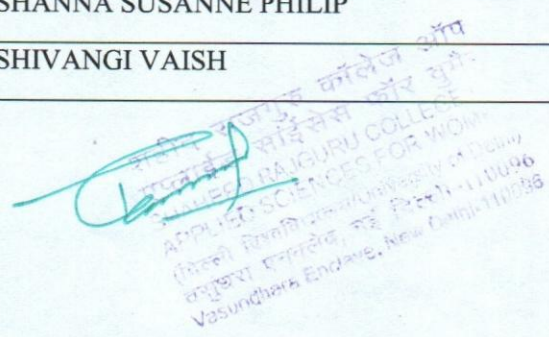 SHANNA SUSANNE PHILIP
SHIVANGI VAISH
शहीद राजगुरु कॉलेज ऑफ
एप्लाईड साईंसेस फॉर
SHAHEED RAJGURU COLLEGE
APPLIED SCIENCES FOR WOM
(दिल्ली University of Delhi)
वसुन्धरा एनक्लेव, नई दिल्ली-110096
Vasundhara Enclave, New Delhi-110096